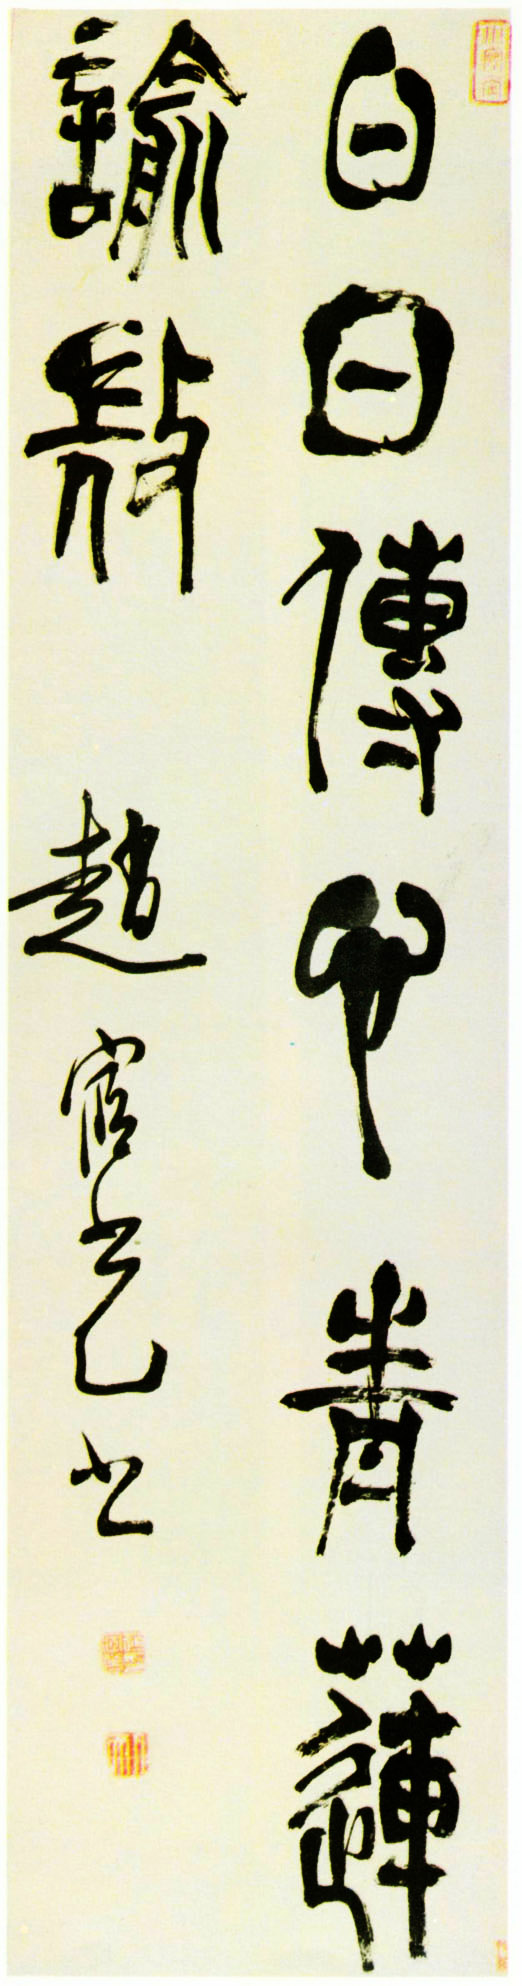 白日傳心青蓮
諭
趙宧光書